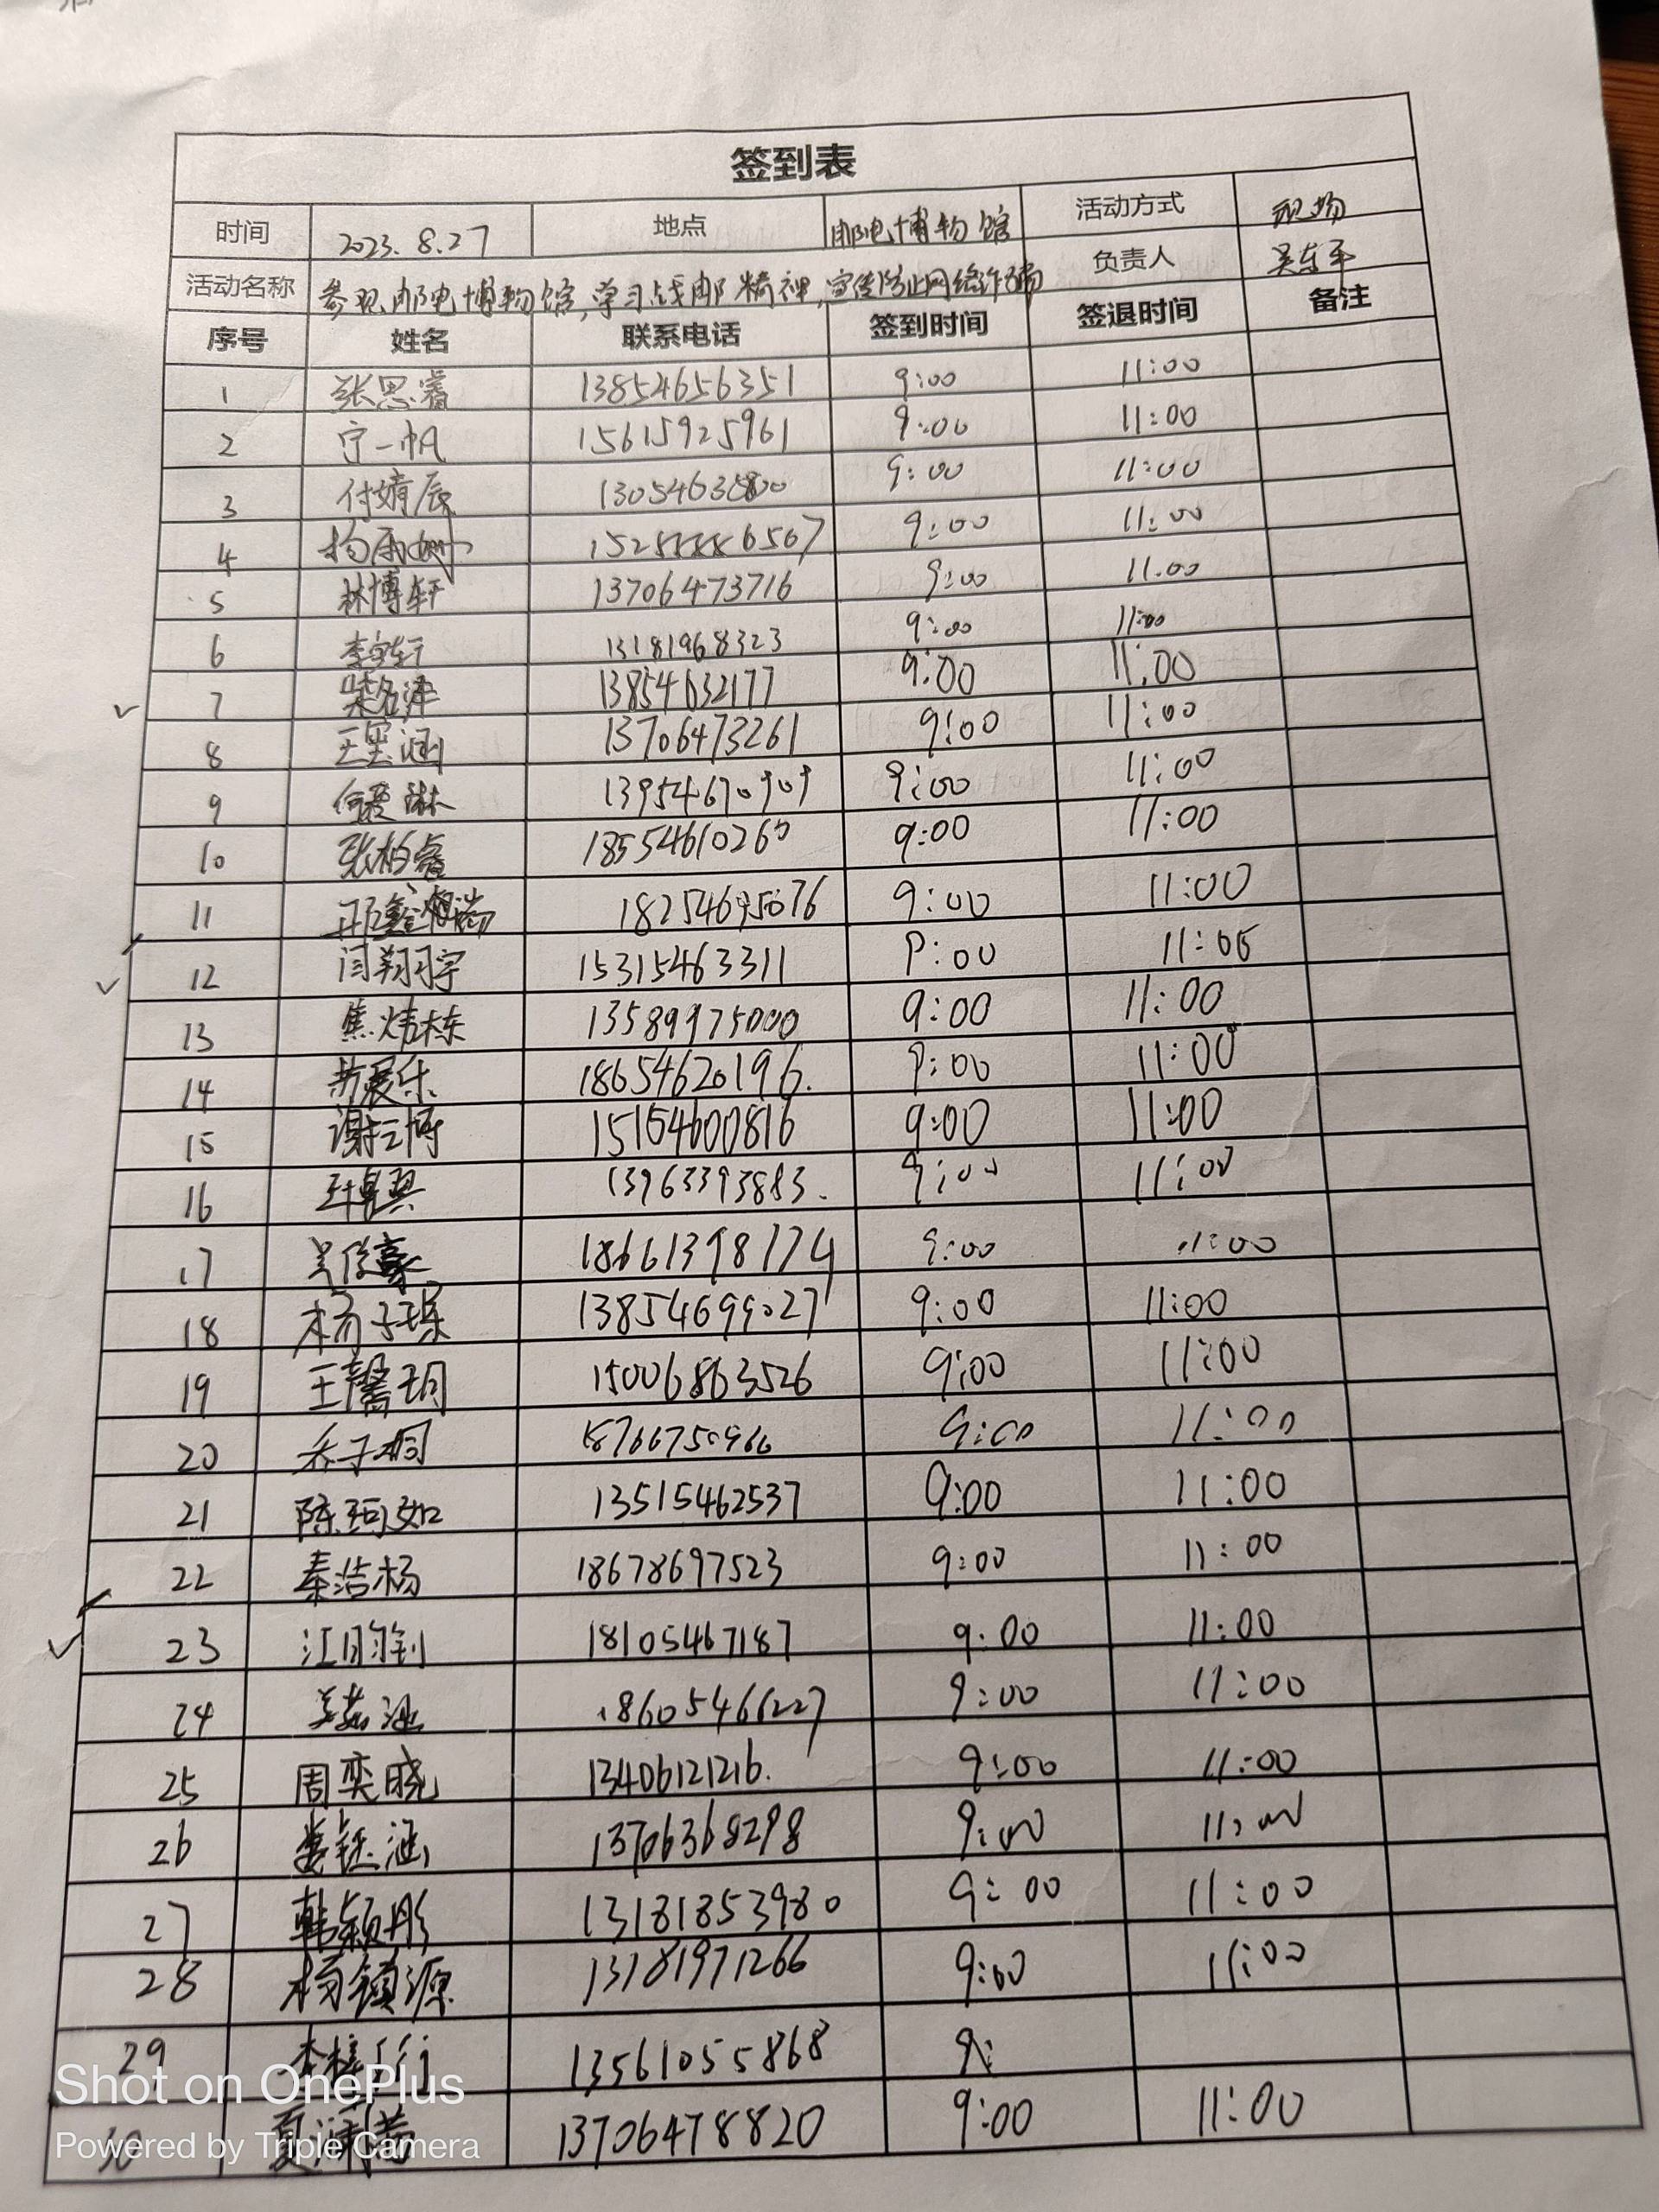 签到表
时间 2023.8.27 地点 邮电博物馆 活动方式 现场
活动名称 参观邮电博物馆,学习战邮精神,宣传防止网络诈骗 负责人 吴东平
序号 姓名 联系电话 签到时间 签退时间 备注
1 张思睿 13854656351 9:00 11:00
2 宁一帆 15615925961 9:00 11:00
3 付婧辰 9:00 11:00
4 杨雨 9:00 11:00
5 林博轩 13706473716 9:00 11:00
6 李宇轩 13181968323 9:00 11:00
7 13854632177 9:00 11:00
8 王 涵 13706473261 9:00 11:00
9 9:00 11:00
10 张柏睿 18554610260 9:00 11:00
11 9:00 11:00
12 闫翔宇 15315463311 9:00 11:00
13 焦炜栋 13589975000 9:00 11:00
14 18654620196. 9:00 11:00
15 谢 博 15154600816 9:00 11:00
16 13963393883. 9:00 11:00
17 18661398174 9:00 11:00
18 杨子 13854699027 9:00 11:00
19 王馨玥 15006863526 9:00 11:00
20 乔子桐 9:00 11:00
21 陈珂如 13515462537 9:00 11:00
22 秦浩杨 18678697523 9:00 11:00
23 18105467187 9:00 11:00
24 18605466227 9:00 11:00
25 周奕晓 13406121216. 9:00 11:00
26 13706368298 9:00 11:00
27 韩颖彤 13181853980 9:00 11:00
28 杨镇源 13181971266 9:00 11:00
29 13561055868 9:
30 夏 13706478820 9:00 11:00
Shot on OnePlus
Powered by Triple Camera